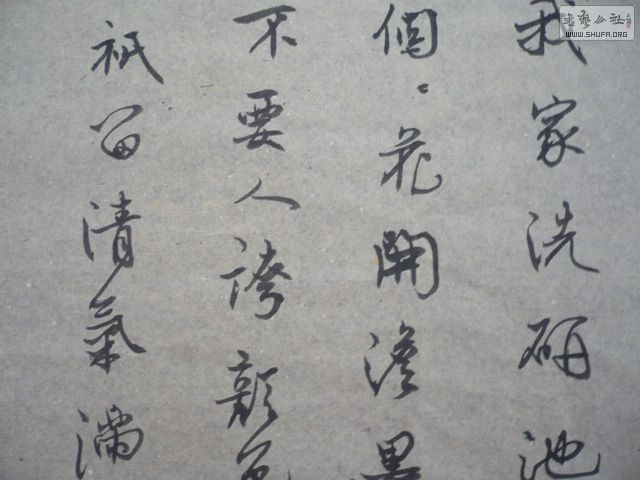 我家洗硏池
個〻花開澹墨
不要人誇顏色
祇留清氣滿
書藝公社
WWW.SHUFA.ORG